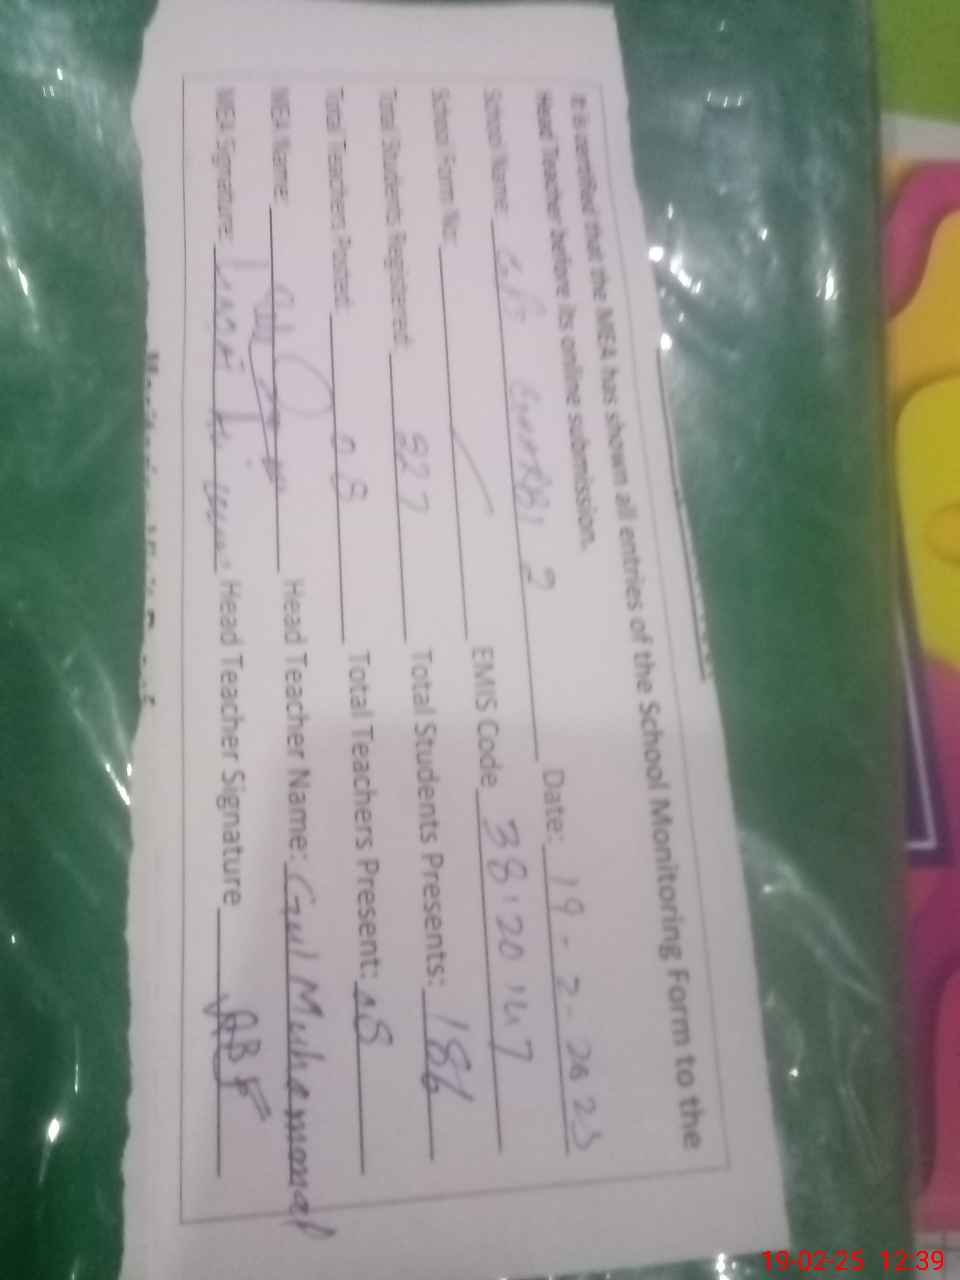 It is certified that the MEA has shown all entries of the School Monitoring Form to the
Head Teacher before its online submission.
School Name: 2 Date: 19-2-2025
School Form No: EMIS Code 38120147
Total Students Registered: 227 Total Students Presents: 186
Total Teachers Posted: 08 Total Teachers Present: 08
MEA Name: Head Teacher Name: Gul Muhammad
MEA Signature: Head Teacher Signature
19-02-25 12:39